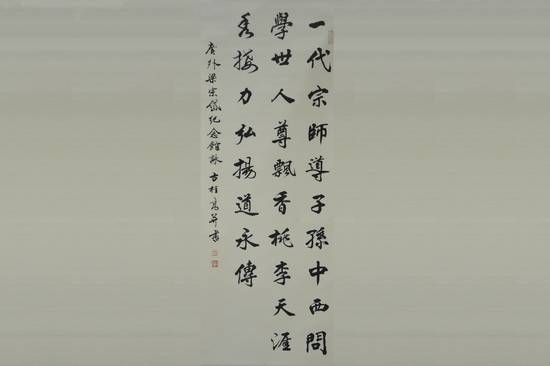 一代宗師導子孫中西問
學世人尊飄香桃李天涯
秀接力弘揚道永傳
廣外梁宗岱纪念館詠 古桂高并書